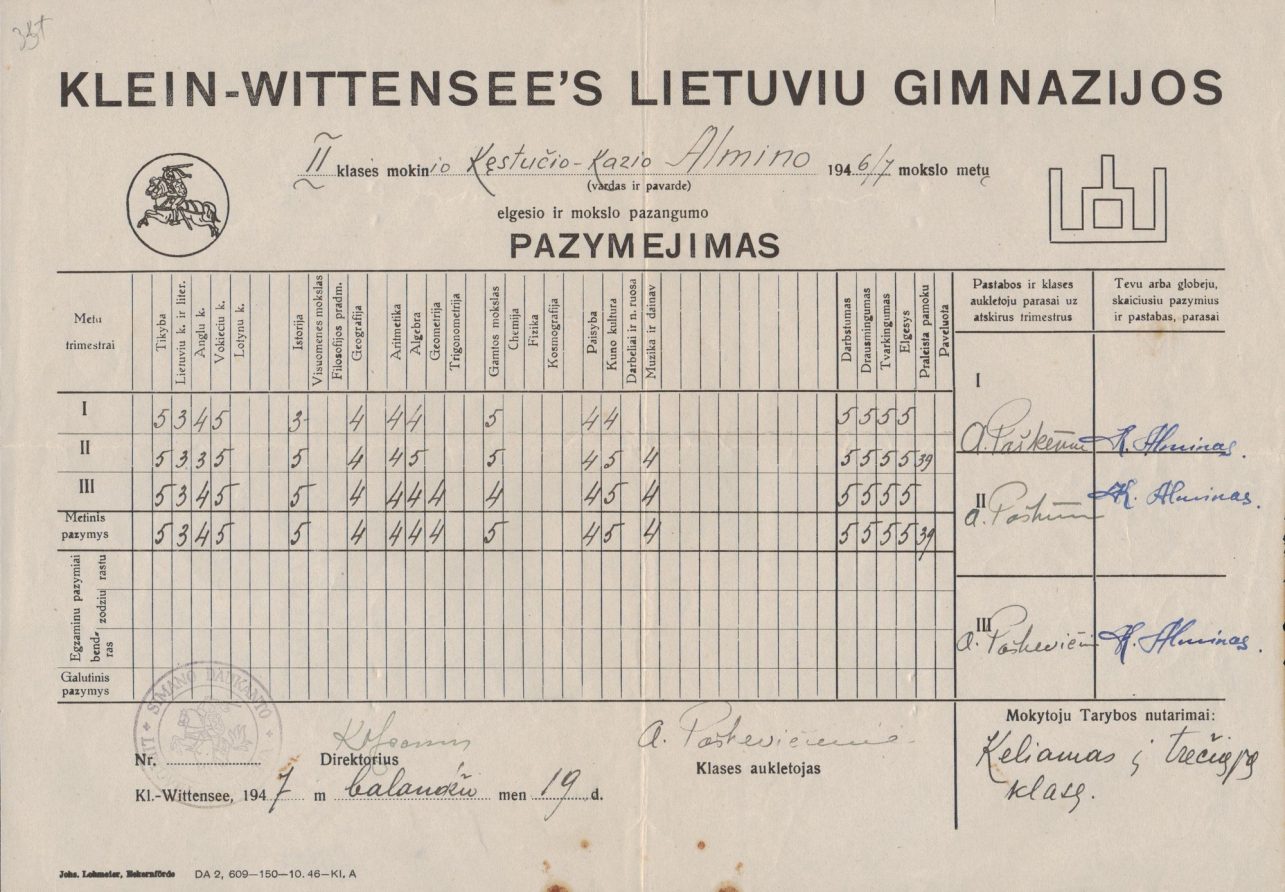 KLEIN-WITTENSEE'S LIETUVIU GIMNAZIJOS
II klasės mokinio Kęstučio-Kazio Almino 1946/7 mokslo metų
(vardas ir pavarde)
elgesio ir mokslo pazangumo
PAZYMEJIMAS
Metu trimestrai
Tikyba
Lietuviu k. ir liter.
Anglu k.
Vokieciu k.
Lotynu k.
Istorija
Visuomenes mokslas
Filosofijos pradm.
Geografija
Aritmetika
Algebra
Geometrija
Trigonometrija
Gamtos mokslas
Chemija
Fizika
Kosmografija
Paisyba
Kuno kultura
Darbeliai ir n. ruosa
Muzika ir dainav
Darbstumas
Drausmingumas
Tvarkingumas
Elgesys
Praleista pamoku
Paveluota
Pastabos ir klases aukletoju parasai uz atskirus trimestrus
Tevu arba globeju, skaiciusiu pazymius ir pastabas, parasai
I 5 3 4 5 3- 4 4 4 5 4 4 5 5 5 5
II 5 3 3 5 5 4 4 5 5 4 5 4 5 5 5 5 39
III 5 3 4 5 5 4 4 4 4 4 4 5 4 5 5 5 5
Metinis pazymys 5 3 4 5 5 4 4 4 4 5 4 5 4 5 5 5 5 39
Egzaminu pazymiai
zodziu rastu
bend- ras
Galutinis pazymys
I
K. Alminas.
II
K. Alminas.
III
K. Alminas.
SIMANO DAUKANTO
Nr.
Direktorius
A. Poškevičienė
Klases aukletojas
Kl.-Wittensee, 1947 m balandžu men 19 d.
Mokytoju Tarybos nutarimai:
Keliamas į trečiąją
klasę.
Johs. Lohmeier, Eckernförde DA 2, 609—150—10. 46—Kl. A